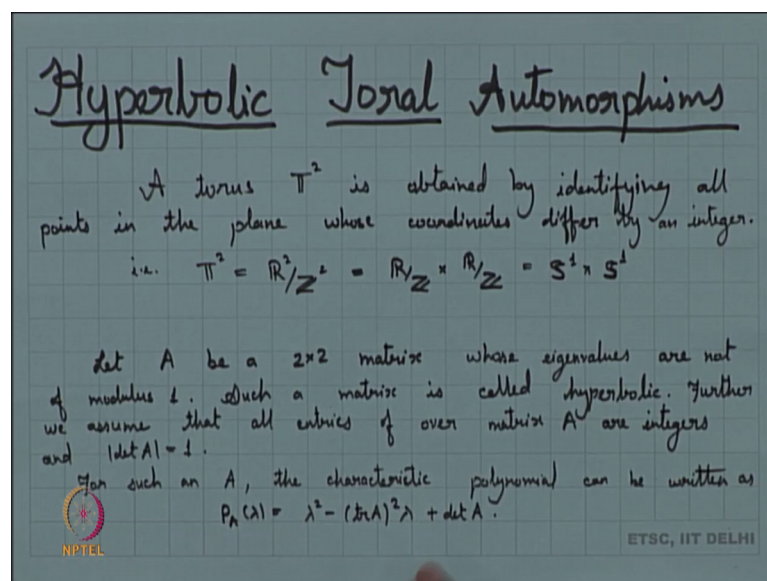 Hyperbolic Toral Automorphisms
A torus 𝕋² is obtained by identifying all
points in the plane whose coordinates differ by an integer.
i.e. 𝕋² = ℝ²/ℤ² = ℝ/ℤ × ℝ/ℤ = S¹ × S¹
Let A be a 2×2 matrix whose eigenvalues are not
of modulus 1. Such a matrix is called hyperbolic. Further
we assume that all entries of over matrix A are integers
and |det A| = 1.
For such an A, the characteristic polynomial can be written as
P_A(λ) = λ² - (trA)²λ + det A.
NPTEL
ETSC, IIT DELHI